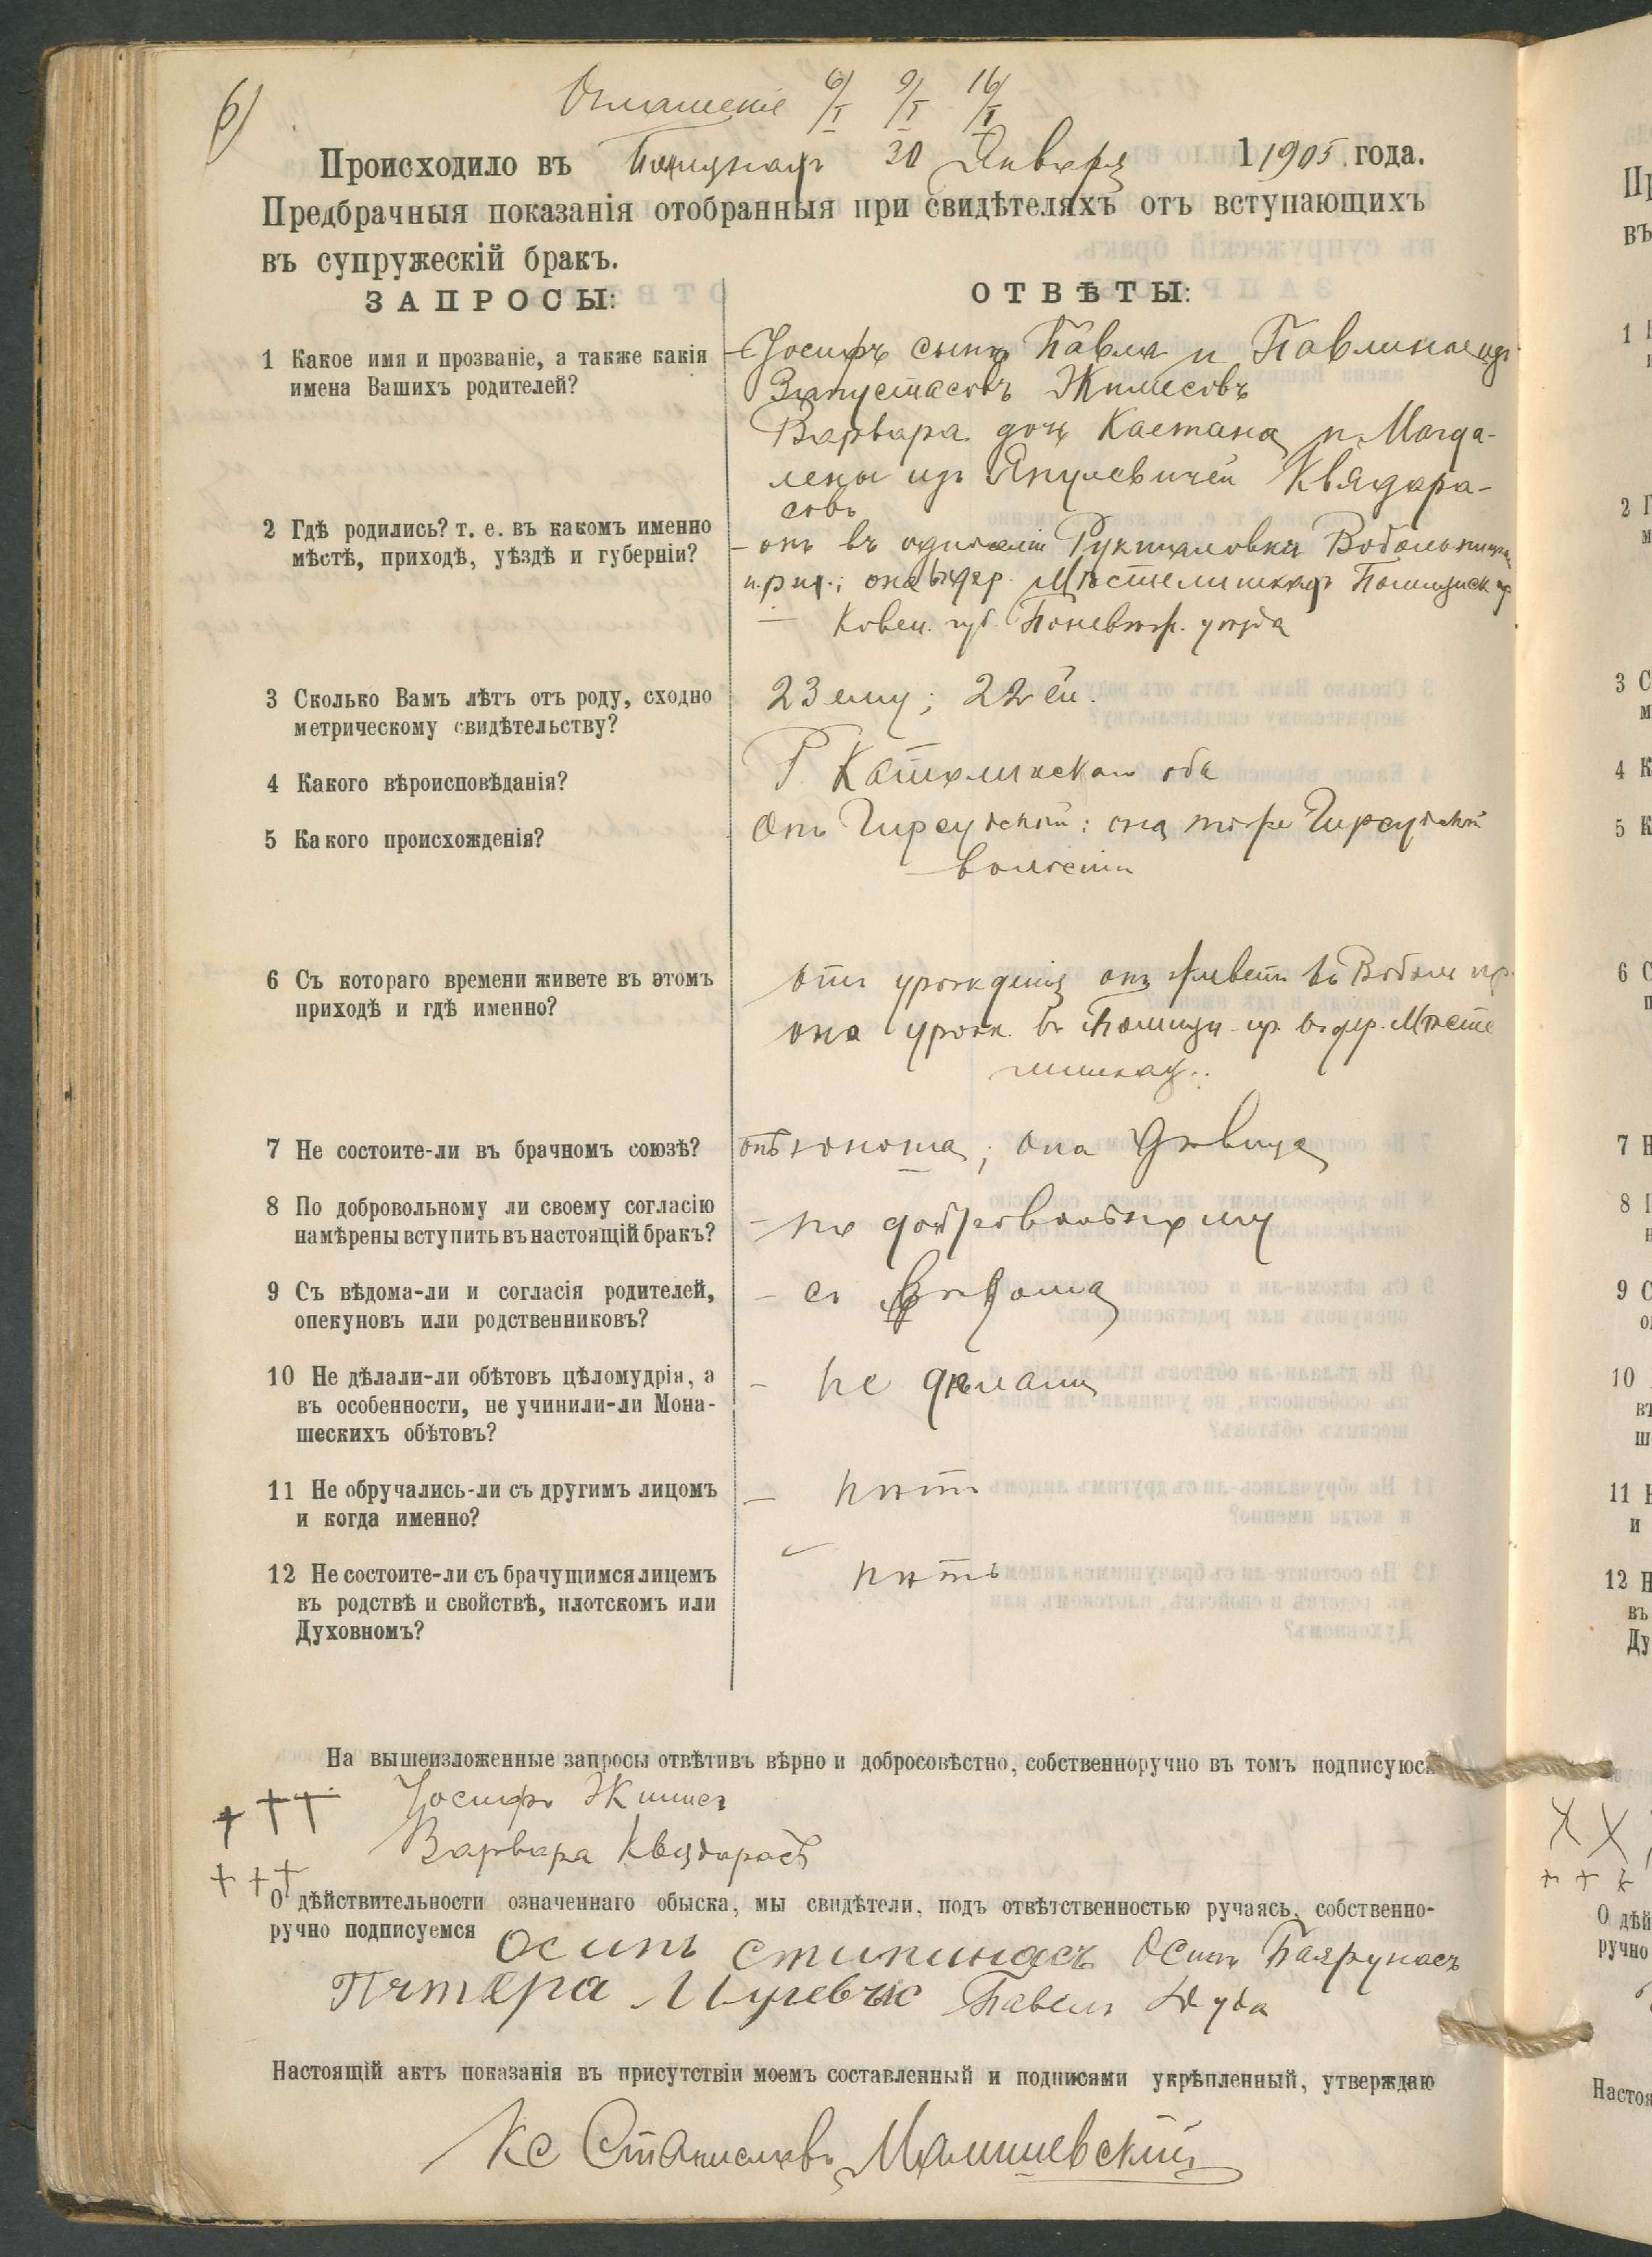 6)
Оглашеніе 6/I 9/I 16/I
Происходило въ 30 Января 1 1905 года.
Предбрачныя показанія отобранныя при свидѣтеляхъ отъ вступающихъ
въ супружескій бракъ.
ЗАПРОСЫ:
ОТВѢТЫ:
1 Какое имя и прозваніе, а также какія
имена Вашихъ родителей?
- Іосифъ сынъ Павла и Павлины изъ
Жимесовъ
Варвара дочь Каетана и Магда-
лены изъ Янулевичей Квядара-
совъ
2 Гдѣ родились? т. е. въ какомъ именно
мѣстѣ, приходѣ, уѣздѣ и губерніи?
- онъ въ
она въ дер.
Ковен. губ. Поневѣж. уѣзда
3 Сколько Вамъ лѣтъ отъ роду, сходно
метрическому свидѣтельству?
23 ему; 22 ей.
4 Какого вѣроисповѣданія?
Р. Католическаго оба
5 Какого происхожденія?
Онъ Гирсудской: она тоже Гирсудской
волости
6 Съ котораго времени живете въ этомъ
приходѣ и гдѣ именно?
отъ урожденія онъ живетъ въ Вобол. пр.
она урожн. въ пр. въ дер.
7 Не состоите-ли въ брачномъ союзѣ?
онъ юноша; она дѣвица
8 По добровольному ли своему согласію
намѣрены вступить въ настоящій бракъ?
- по добровольному
9 Съ вѣдома-ли и согласія родителей,
опекуновъ или родственниковъ?
- съ вѣдома
10 Не дѣлали-ли обѣтовъ цѣломудрія, а
въ особенности, не учинили-ли Мона-
шескихъ обѣтовъ?
- не дѣлали
11 Не обручались-ли съ другимъ лицомъ
и когда именно?
- нѣтъ
12 Не состоите-ли съ брачущимся лицемъ
въ родствѣ и свойствѣ, плотскомъ или
Духовномъ?
нѣтъ
На вышеизложенные запросы отвѣтивъ вѣрно и добросовѣстно, собственноручно въ томъ подписуюсь
+ + + Іосифъ Жимисъ
Варвара
+ + +
О дѣйствительности означеннаго обыска, мы свидѣтели, подъ отвѣтственностью ручаясь, собственно-
ручно подписуемся Осипъ Стипинасъ Осипъ Баярунасъ
Пѣтера Павелъ Дуда
Настоящій актъ показанія въ присутствіи моемъ составленный и подписями укрѣпленный, утверждаю
Кс Станиславъ Малишевскій